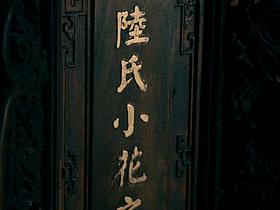 陸氏小花